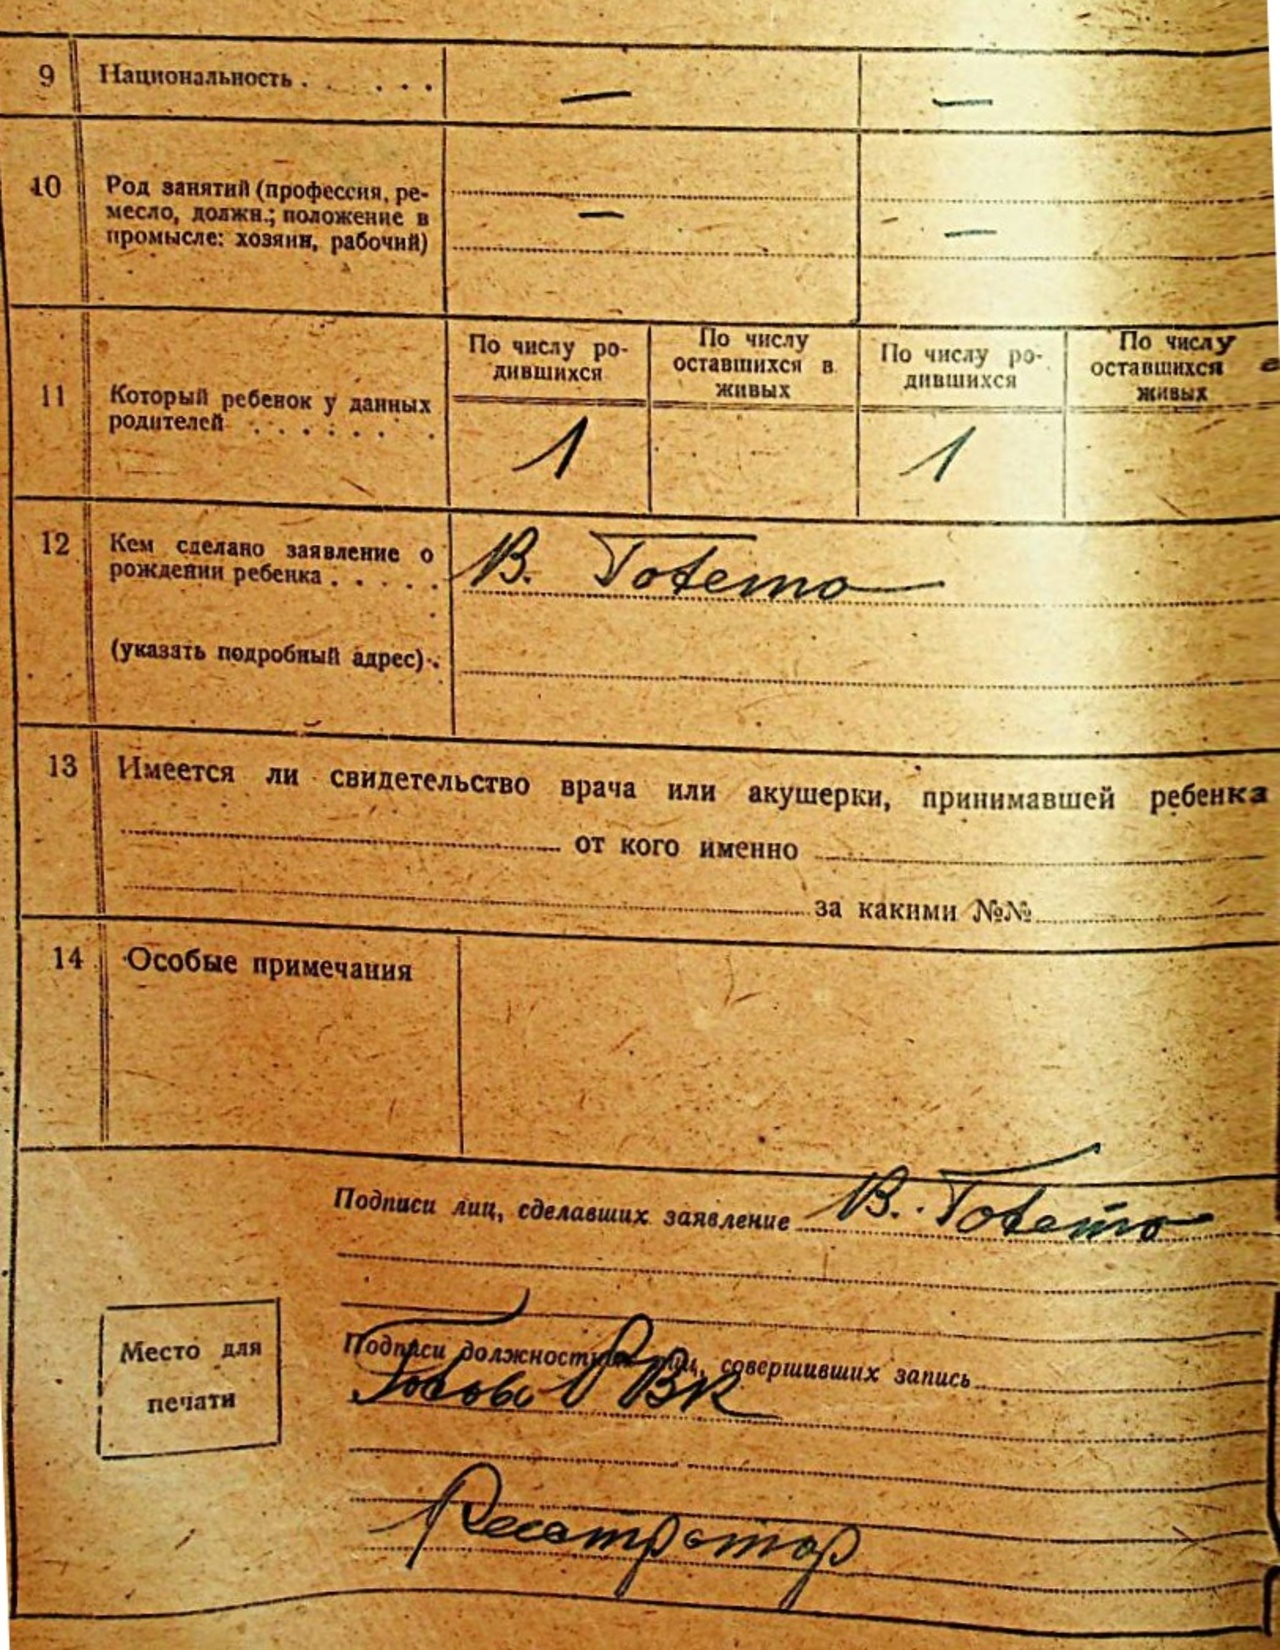 9 Национальность . . . . . . — —
10 Род занятий (профессия, ре-
месло, должн.; положение в — —
промысле: хозяин, рабочий)
По числу ро- По числу По числу ро- По числу
дившихся оставшихся в дившихся оставшихся в
живых живых
11 Который ребенок у данных
родителей . . . . . . . 1 1
12 Кем сделано заявление о В.
рождении ребенка . . . . .
(указать подробный адрес) .
13 Имеется ли свидетельство врача или акушерки, принимавшей ребенка
от кого именно
за какими №№
14 Особые примечания
Подписи лиц, сделавших заявление В.
Подписи должностных лиц, совершивших запись
Место для
печати